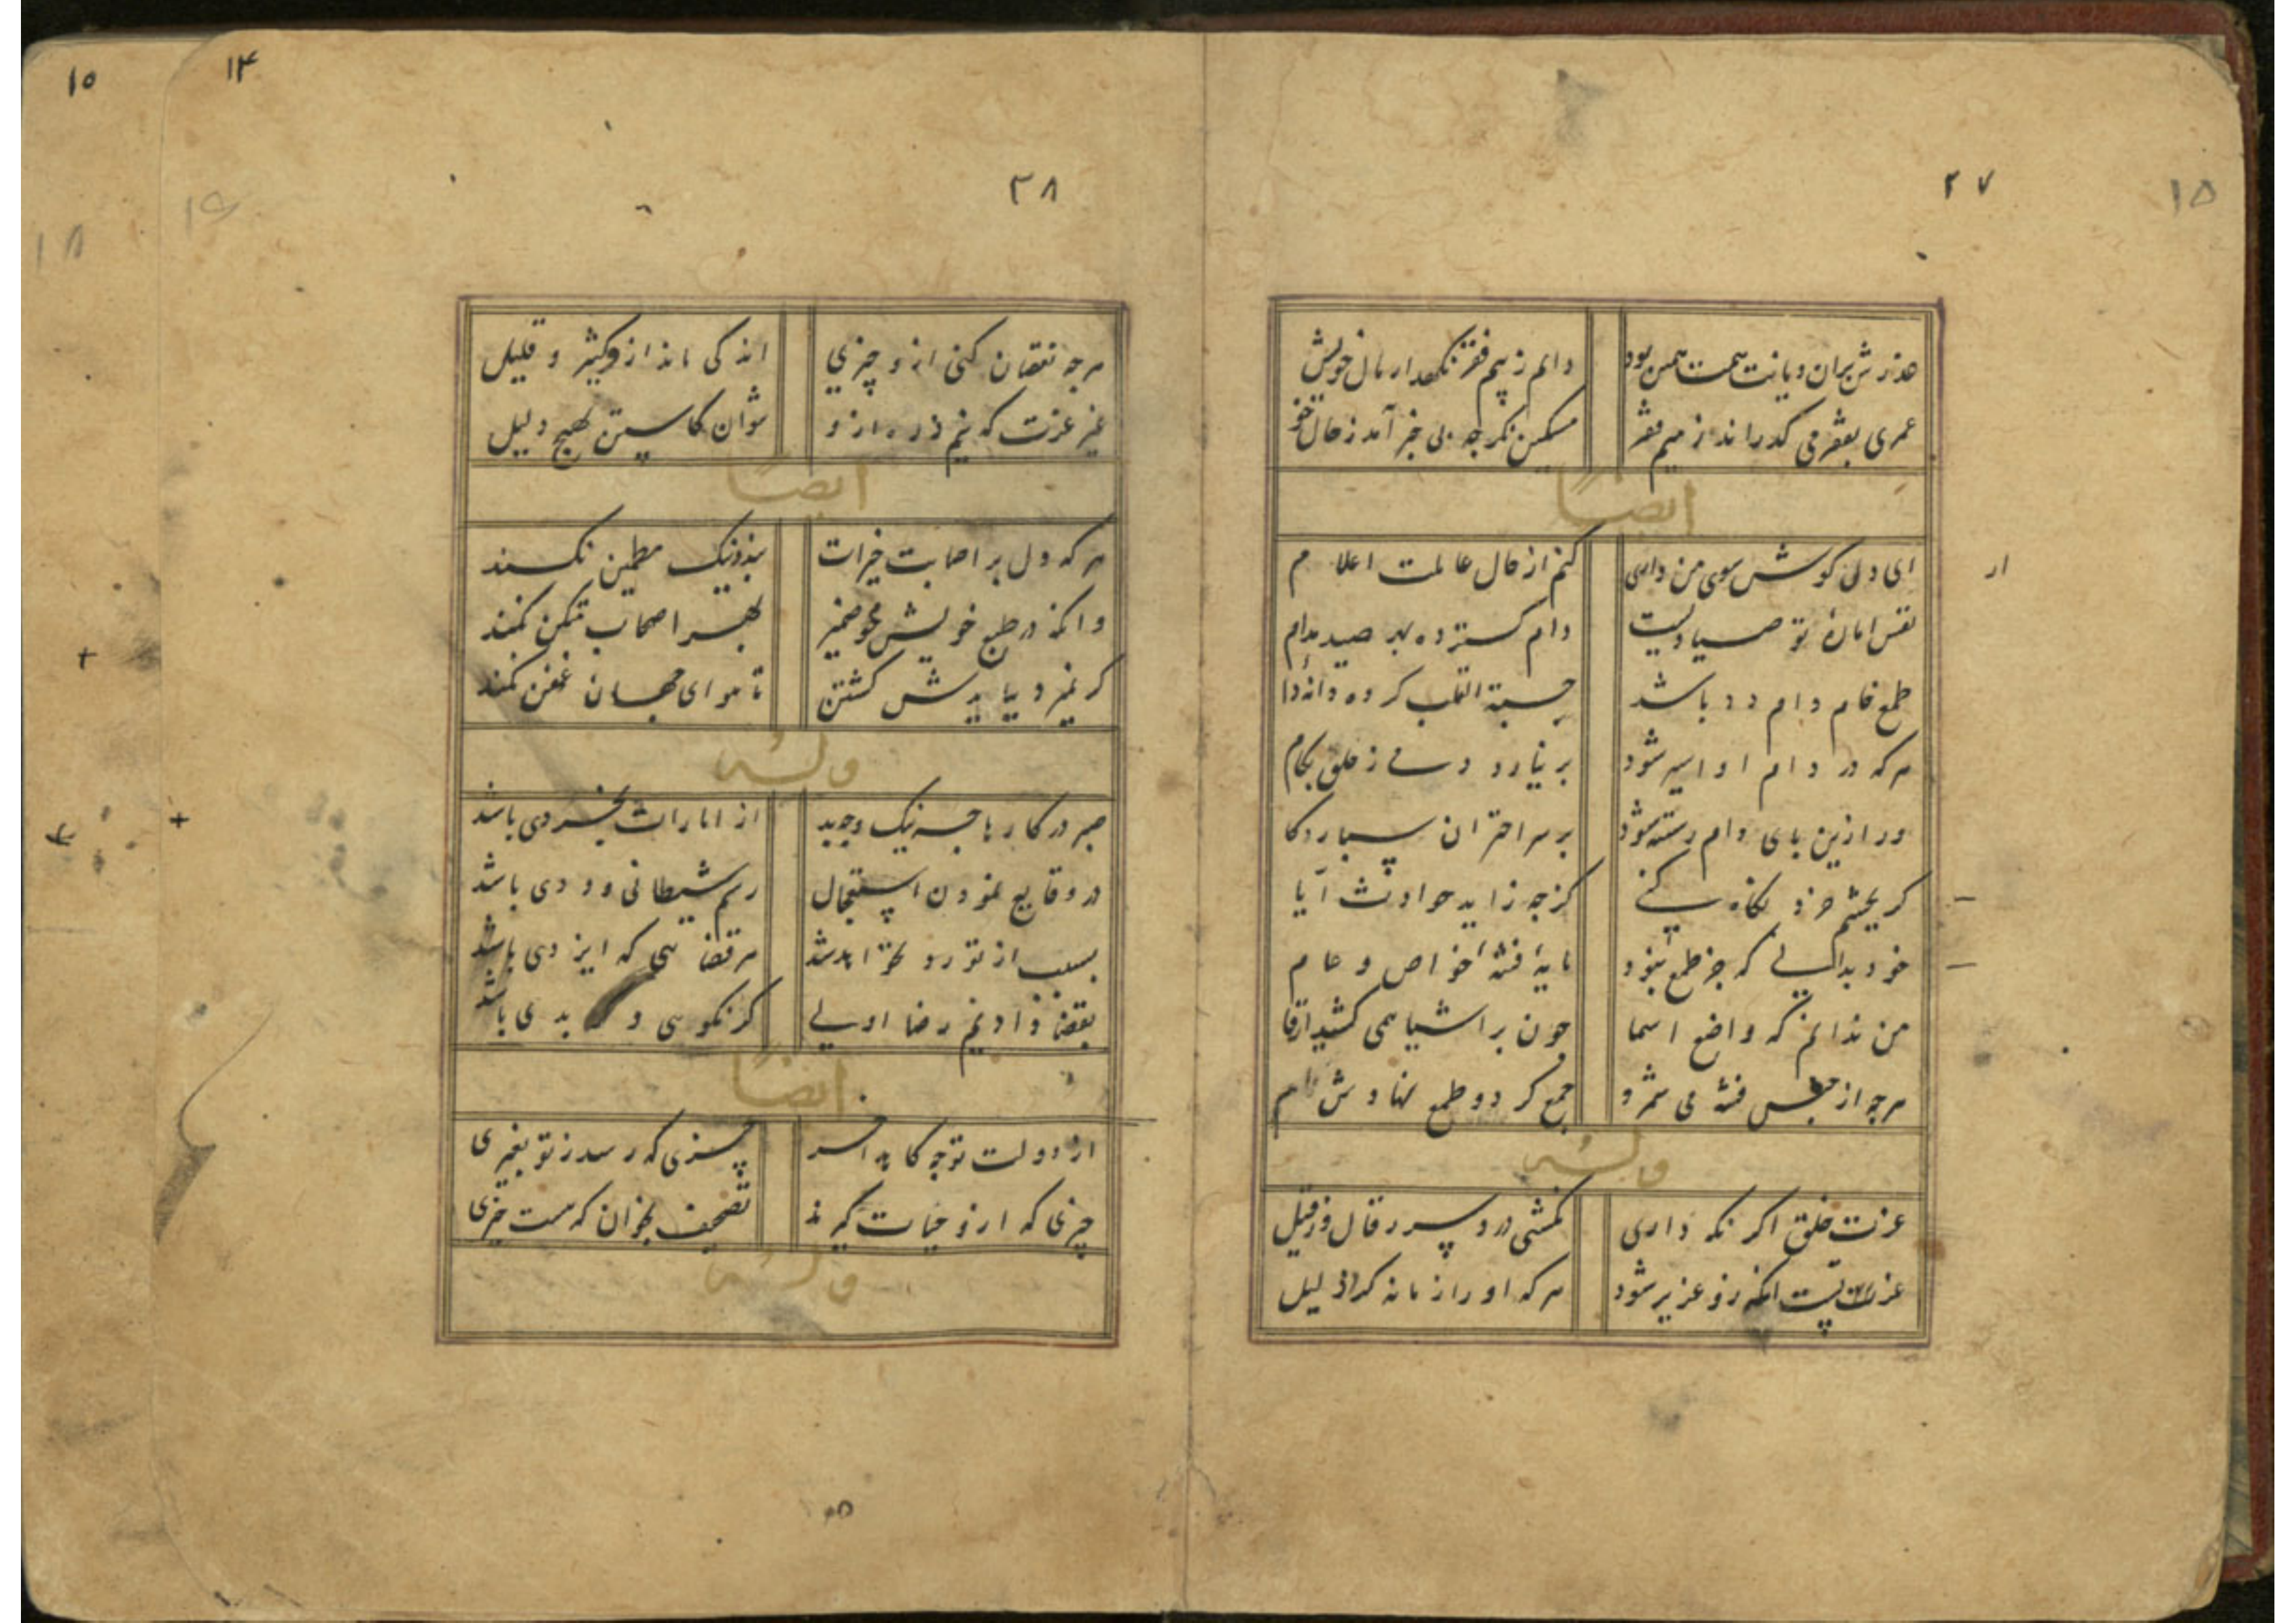 ۲۷
۱۵
عذرش بران دیانت همت همین بود دایم ز بیم فقر نگهدار مال خویش
عمری بفقر می گذراند ز بیم فقر مسکین نگر چه بی خبر آمد ز حال خو
ایضاً
ای دل ار گوش سوی من داری کنم از حال عالمت اعلام
نفس امارهٔ تو صیادیست دام گسترده بهر صید مدام
طمع خام دام دد باشد حسبة القلب کرده دانهٔ دا
هر که در دام او اسیر شود بر نیارد دمی ز خلق بکام
ور ازین پای دام رسته شود بر سر اختران سپارد کا
گر بچشم خرد نگاه کنی کز چه زاید حوادث آیا
خود بدانی که جز طمع نبود مایهٔ فتنهٔ خواص و عام
من ندانم که واضع اسما چون بر اشیا همی کشید ارقا
هرچه از جنس فتنه می شمرد جمع کرد و طمع نهادش نام
وله
عزت خلق اگر نگه داری نکشی درد سر ز قال و ز قیل
عزت تست آنکه زو عزیز شود هر که او را زمانه کرد ذلیل
۱۵
۱۴
۲۸
۱۶
۱۸
هرچه نقصان کنی ازو چیزی اندکی ماند از کثیر و قلیل
غیر عزت که نیم ذره ازو نتوان کاستن بهیچ دلیل
ایضاً
هر که دل بر اصابت خیرات بد و نیک مطمین نکند
وانکه در طبع خویش محو ضمیر بهر اصحاب متکن نکند
گر نمیرد بیایدش کشتن تا هوای جهان عفن نکند
وله
صبر در کارها چه نیک و چه بد از امارات بخردی باشد
در وقایع نمودن استعجال رسم شیطانی و ددی باشد
بسبب از تو رد نخواهد شد هر قضائی که ایزدی باشد
بقضا دادنیم رضا اولی گر نکوئی و بدی باشد
ایضاً
از دولت تو چه کاهد آخر چیزی که رسد ز تو بغیری
چیزی که ازو حیات گیرند تصحیف بخوان که هست خیری
وله